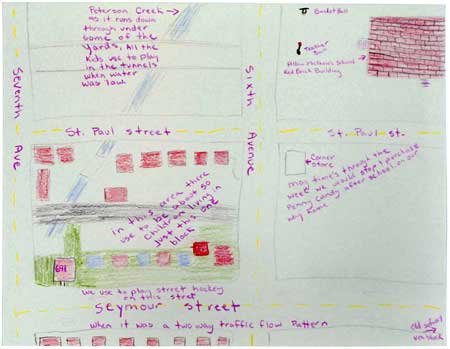 Peterson Creek
as it runs down
through under
Some of the
Yards, All the
Kids use to play
in the tunnels
when water
was low.
Basket Ball
Teather
Ball
Red Brick Building
Seventh Ave
Sixth Avenue
St. Paul street
St. Paul st.
Corner
Store
many time's through the
week we would stop & purchase
Penny Candy after school on our
way home
In this area there
use to be about 50
Children living in
Just this one
block
We use to play street hockey
on this stret
Seymour street
when it was a two way traffic flow Pattern
old school